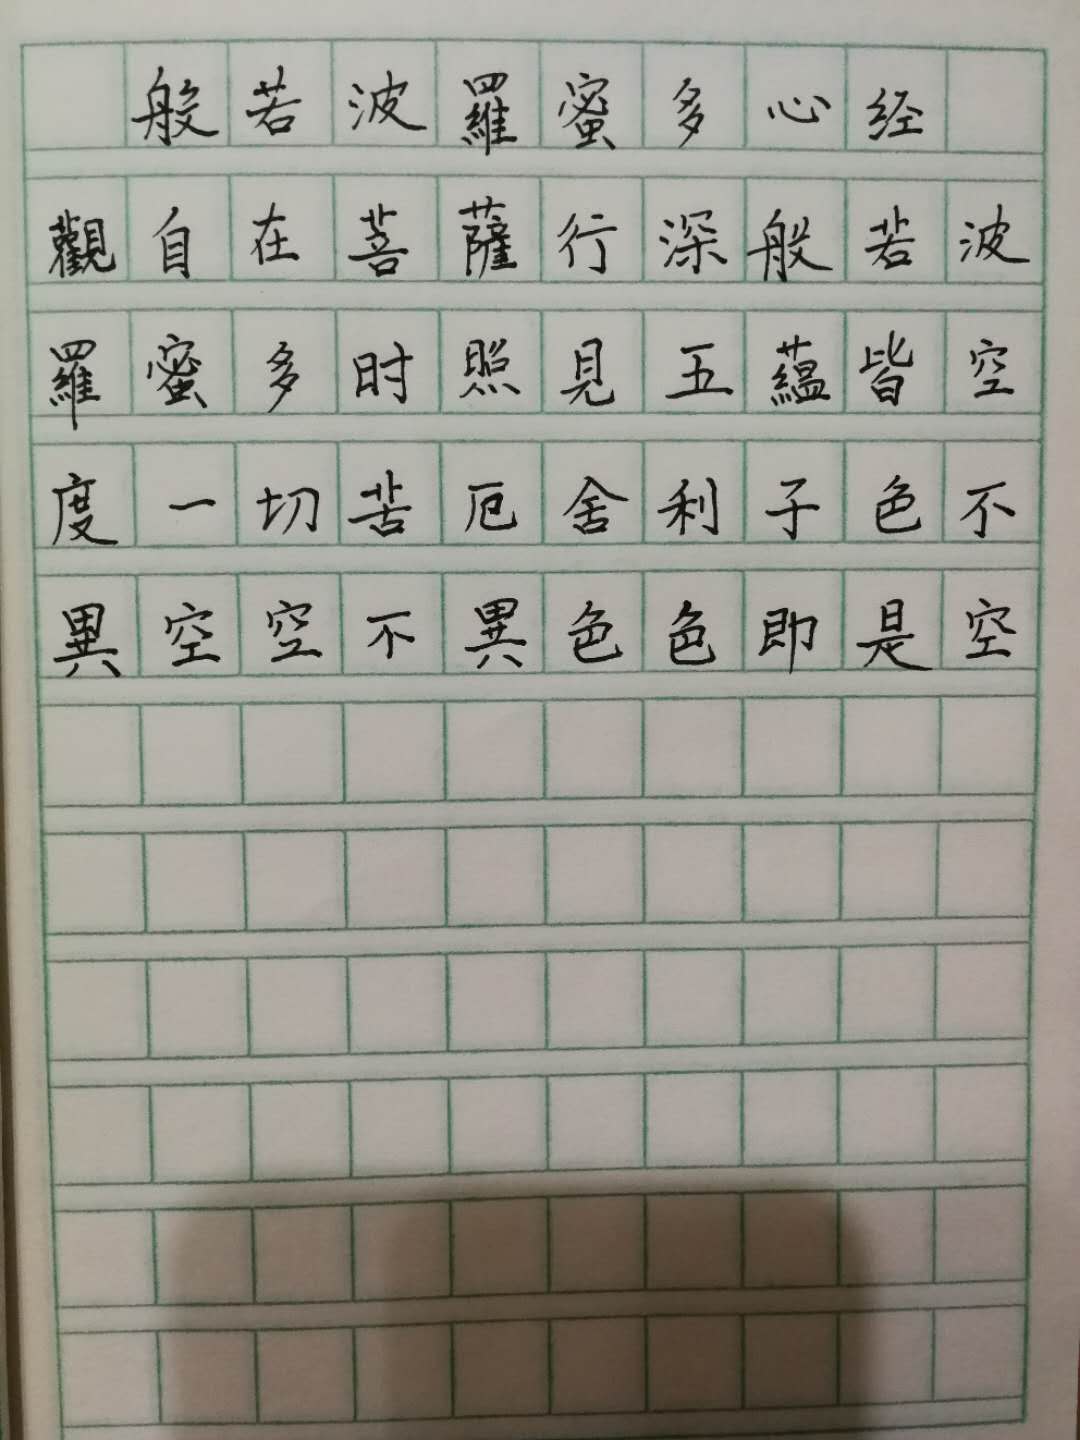 般若波羅蜜多心经
觀自在菩薩行深般若波
羅蜜多时照見五蘊皆空
度一切苦厄舍利子色不
異空空不異色色即是空